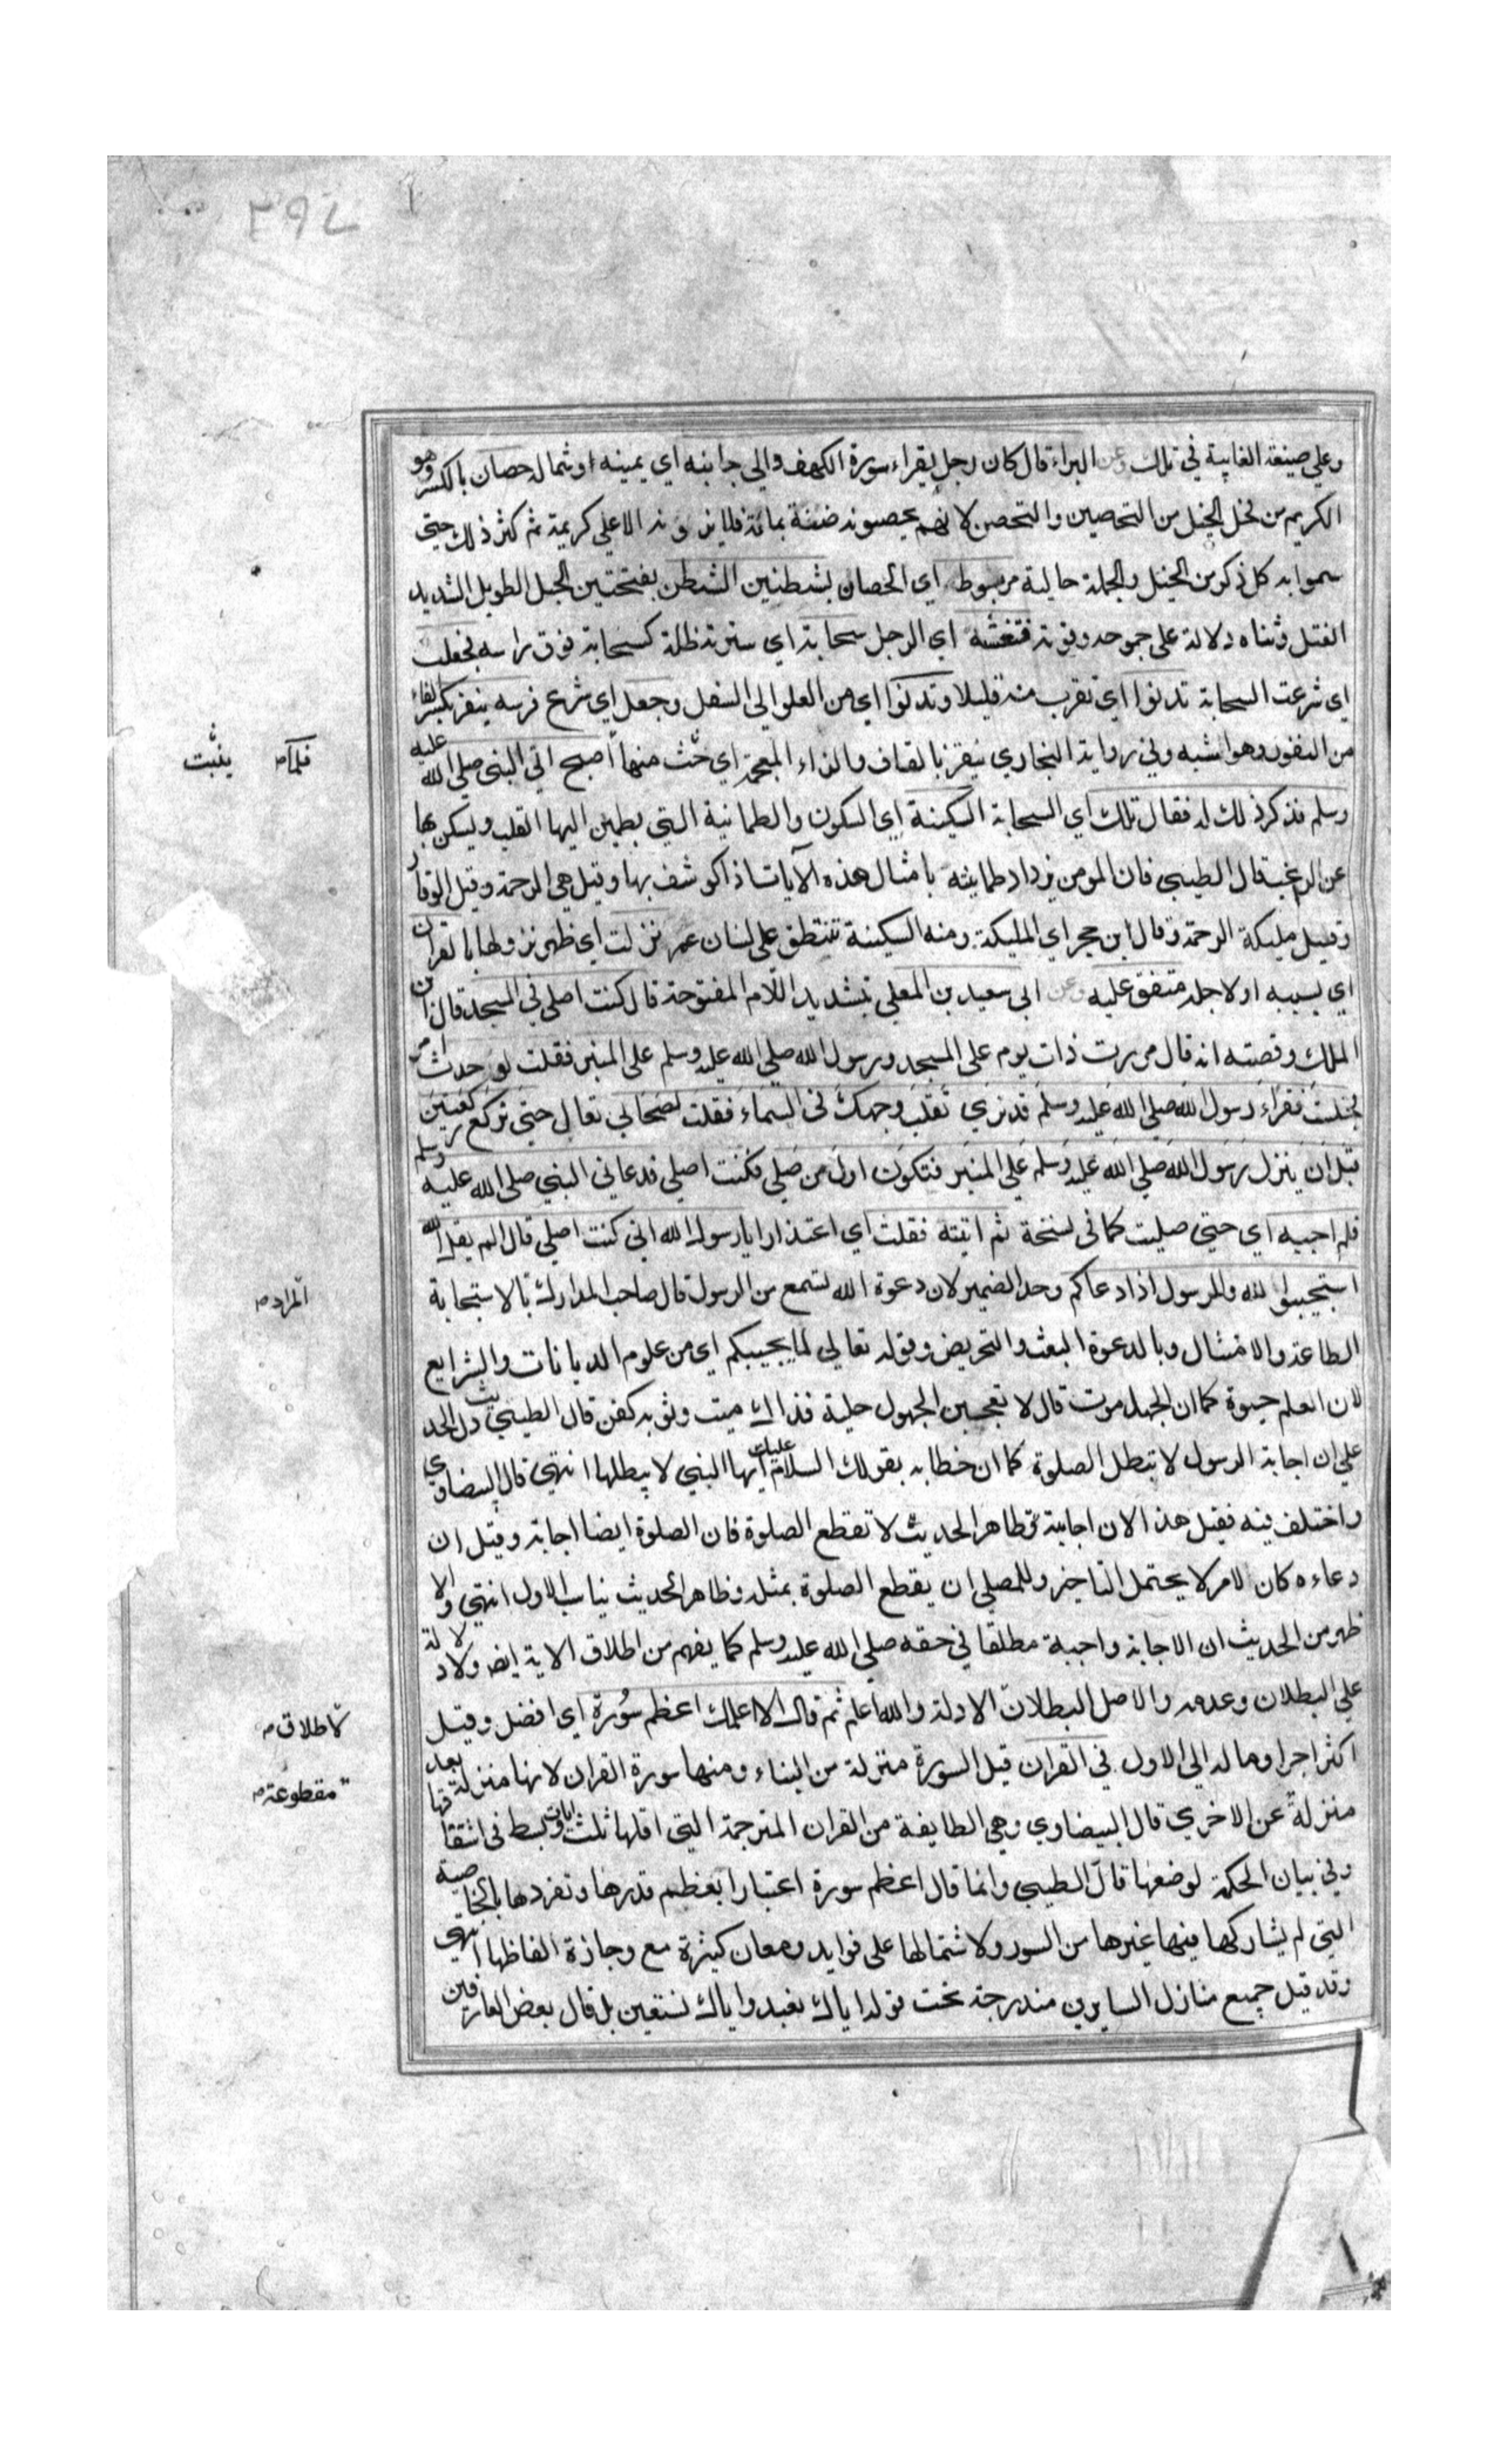 ٢٩٧
وعلى صيغة الغايبة في تلك وعن البراء قال كان رجل يقراء سورة الكهف والى جانبه اي يمينه او شماله حصان بالكسر وهو
الكريم من فحل الخيل من التحصين والتحصن لانهم يحصنونه ضنة بمائه فلا ينزونه الا على كريمة ثم كثر ذلك حتى
سموا به كل ذكر من الخيل والجملة حالية مربوط اي الحصان بشطنين الشطن بفتحتين الحبل الطويل الشديد
الفتل وثناه دلالة على جموحه وقوته فتغشته اي الرجل سحابة اي سترته ظلة كسحابة فوق راسه فجعلت
اي شرعت السحابة تدنوا اي تقرب منه قليلا وتدنوا اي من العلو الى السفل وجعل اي شرع فرسه ينفر بكسر الفاء
من النفور وهو اشبه وفي رواية البخاري ينقز بالقاف والزاء المعجمة اي منها اصبح اتى النبي صلى الله عليه
فلما ينبت
وسلم فذكر ذلك له فقال تلك اي السحابة السكينة اي السكون والطمانية التي يطمين اليها القلب ويسكن بها
عن الرغب قال الطيبي فان المومن يزداد طمانينته بامثال هذه الآيات اذا كوشف بها وقيل هي الرحمة وقيل الوقار
وقيل مليكة الرحمة وقال ابن حجر اي المليكة ومنه السكينة تنطق على لسان عمر نزلت اي ظهر نزولها بالقران
اي بسببه او لاجله متفق عليه وعن ابي سعيد بن المعلى بتشديد اللام المفتوحة قال كنت اصلي في المسجد قال ابن
الملك وقصته انه قال مررت ذات يوم على المسجد ورسول الله صلى الله عليه وسلم على المنبر فقلت لو حدث امر
فجلست فقراء رسول الله صلى الله عليه وسلم قد نرى تقلب وجهك في السماء فقلت لصحابي تعال حتى نركع ركعتين
قبل ان ينزل رسول الله صلى الله عليه وسلم على المنبر فتكون اول من صلى فكنت اصلي فدعاني النبي صلى الله عليه وسلم
فلم اجبه اي حتى صليت كما في نسخة ثم اتيته فقلت اي اعتذارا يا رسول الله اني كنت اصلي قال الم يقل الله
استجيبوا لله والرسول اذا دعاكم وحد الضمير لان دعوة الله تسمع من الرسول قال صاحب المدارك بالاستجابة
المراد
الطاعة والامتثال وبالدعوة البعث والتحريض وقوله تعالى لما يحييكم اي من علوم الديانات والشرايع
لان العلم حيوة كما ان الجهل موت قال لا تعجبن الجهول حلية فذاك ميت وثوبه كفن قال الطيبي دل الحديث
على ان اجابة الرسول لا تبطل الصلوة كما ان خطابه بقولك السلام عليك ايها النبي لا يبطلها انتهى قال البيضاوي
واختلف فيه فقيل هذا لان اجابته لا تقطع الصلوة فان الصلوة ايضا اجابة وقيل ان
دعاءه كان لامر لا يحتمل التاخير وللمصلي ان يقطع الصلوة بمثله وظاهر الحديث يناسب الاول انتهى والا
ظهر من الحديث ان الاجابة واجبة مطلقا في حقه صلى الله عليه وسلم كما يفهم من اطلاق الاية ايضا ولا دلالة
على البطلان وعدمه والاصل البطلان الادلة والله اعلم ثم قال الا اعلمك اعظم سورة اي افضل وقيل
لاطلاق
اكثر اجرا وماله الى الاول في القران قيل السورة منزلة من البناء ومنها سورة القران لانها منزلة بعد
مقطوعة
منزلة عن الاخري قال البيضاوي وهي الطايفة من القران المترجمة التي اقلها ثلث ايات وبسط في اشتقاقها
وفي بيان الحكمة لوضعها قال الطيبي وانما قال اعظم سورة اعتبارا بعظيم قدرها وتفردها بالخاصية
التي لم يشاركها فيها غيرها من السور ولاشتمالها على فوايد ومعان كثيرة مع وجازة الفاظها انتهى
وقد قيل جميع منازل السايرين مندرجة تحت قوله اياك نعبد واياك نستعين بل قال بعض العارفين